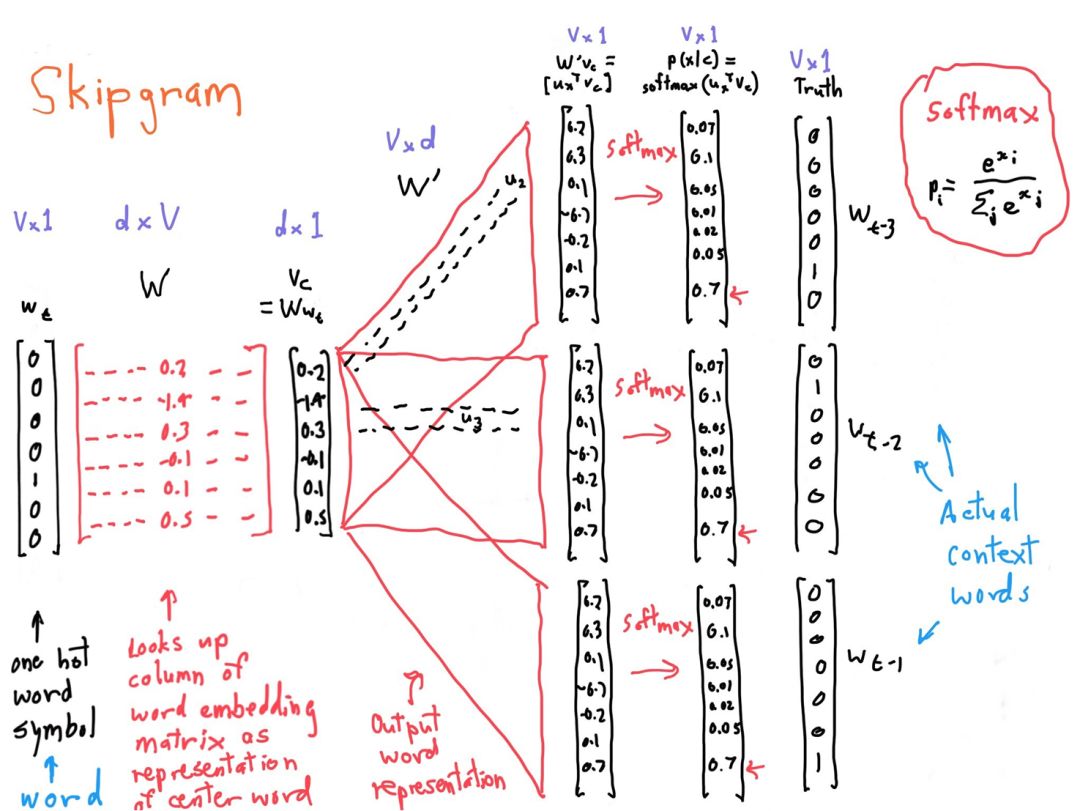 Skipgram
V×1
w_t
0
0
0
0
1
0
0
one hot
word
symbol
word
d×V
W
---- 0.2 - -
---- -1.4 - -
---- 0.3 - -
---- -0.1 - -
---- 0.1 - -
---- 0.5 - -
Looks up
column of
word embedding
matrix as
representation
of center word
d×1
V_c
= Ww_t
0.2
-1.4
0.3
-0.1
0.1
0.5
V×d
W'
u_2
u_3
Output
word
representation
V×1
W'v_c =
[u_x^T v_c]
6.7
6.3
0.1
-6.7
-0.2
0.1
0.7
softmax
V×1
p(x|c) =
softmax(u_x^T v_c)
0.07
0.1
0.05
0.01
0.02
0.05
0.7
V×1
Truth
0
0
0
0
0
1
0
w_t-3
6.7
6.3
0.1
-6.7
-0.2
0.1
0.7
softmax
0.07
0.1
0.05
0.01
0.02
0.05
0.7
0
1
0
0
0
0
0
w_t-2
6.7
6.3
0.1
-6.7
-0.2
0.1
0.7
softmax
0.07
0.1
0.05
0.01
0.02
0.05
0.7
0
0
0
0
0
0
1
w_t-1
Actual
context
words
softmax
p_i = e^x_i / Σ_j e^x_j